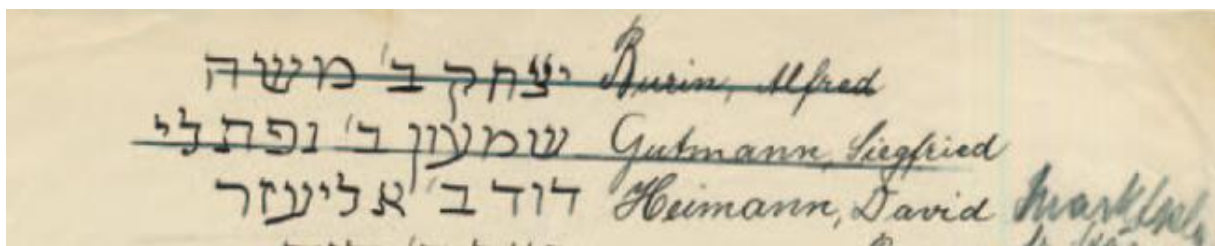 יצחק ב' משה Burin, Alfred
שמעון ב' נפתלי Gutmann, Siegfried
דוד ב' אליעזר Heimann, David